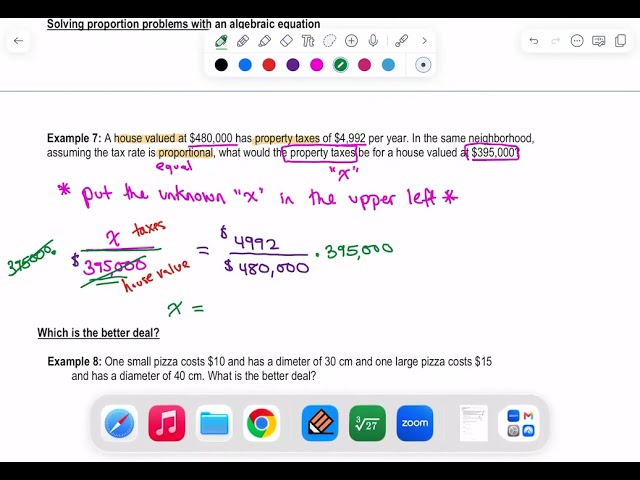 Solving proportion problems with an algebraic equation
Example 7: A house valued at $480,000 has property taxes of $4,992 per year. In the same neighborhood,
assuming the tax rate is proportional, what would the property taxes be for a house valued at $395,000?
equal "x"
* put the unknown "x" in the upper left *
x taxes
395000. $395,000 house value = $4992 / $480,000 · 395,000
x =
Which is the better deal?
Example 8: One small pizza costs $10 and has a dimeter of 30 cm and one large pizza costs $15
and has a diameter of 40 cm. What is the better deal?
∛27 zoom